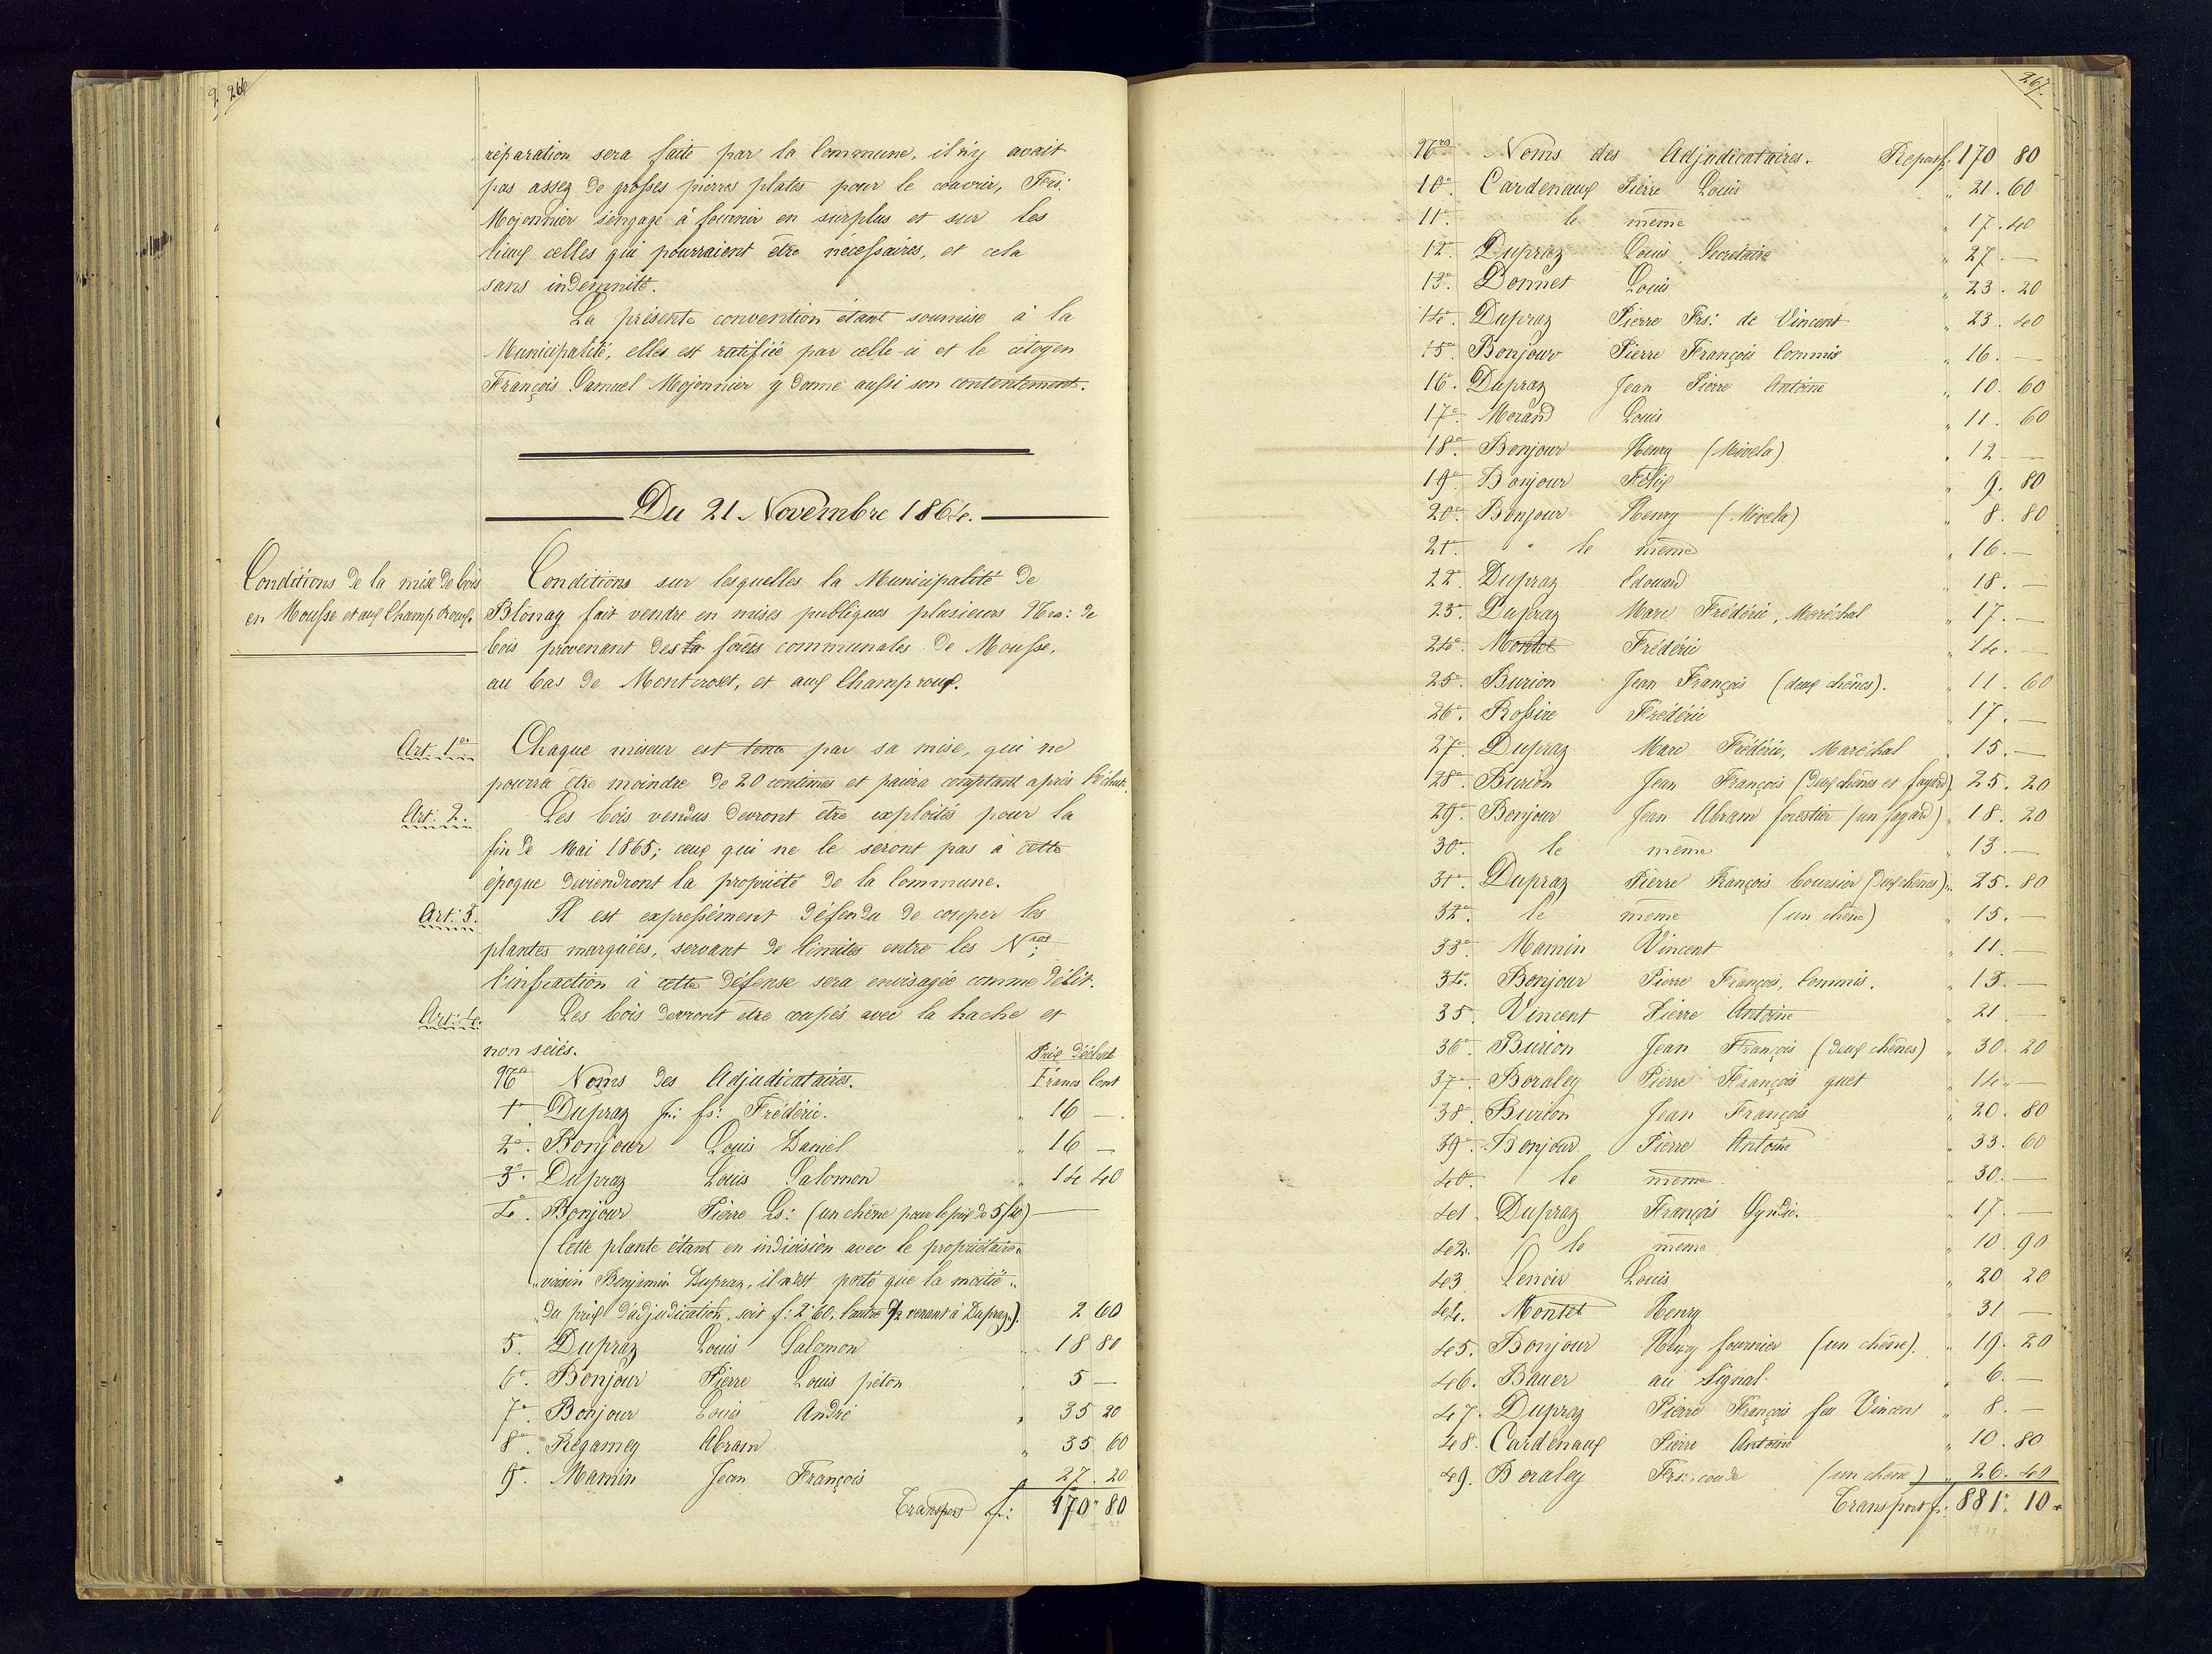 266
réparation sera faite par la Commune, il n'y avait
pas assez de grosses pierres plates pour le couvrir, Fcs:
Mojonnier s'engage à fournir en surplus et sur les
lieux celles qui pourraient être nécessaires, et cela
sans indemnité.
La présente convention étant soumise à la
Municipalité, elles est ratifiée par celle-ci et le citoyen
François Samuel Mojonnier y donne aussi son contentement.
Du 21 Novembre 1864.
Conditions de la mise de bois
en Mousse et aux Champ Roux.
Conditions sur lesquelles la Municipalité de
Blonay fait vendre en mises publiques plusieurs Nros: de
bois provenant des la forêts communales de Mousse,
au bas de Montcroset, et aux Champ roux.
Art. 1er Chaque miseur est tenu par sa mise, qui ne
pourra être moindre de 20 centimes et paiera comptant après l'échute.
Art: 2. Les bois vendus devront être exploités pour la
fin de Mai 1865; ceux qui ne le seront pas à cette
époque deviendront la propriété de la Commune.
Art: 3. Il est expressément défendu de couper les
plantes marquées, servant de limites entre les Nros;
l'infraction à cette défense sera envisagée comme délit.
Art: 4. Les bois devront être coupés avec la hache et
non sciés. Prix d'échute
Nos Noms des Adjudicataires. Francs Cent
1o Dupraz fs: Frédéric. " 16 —
2o. Bonjour Louis Daniel " 16 —
3o. Dupraz Louis Salomon " 14 40
4o. Bonjour Pierre Ls: (un chêne pour le prix de 5f 20) —
(Cette plante étant en indivision avec le propriétaire
"voisin Benjamin Dupraz, il n'est porté que la moitié"
"du prix d'adjudication, soit f: 2"60, l'autre 1/2 venant à Dupraz.) 2 60
5. Dupraz Louis Salomon " 18 80
6o. Bonjour Pierre Louis piéton " 5 —
7o. Bonjour Louis André " 35 20
8o. Regamey Abram " 35 60
9o. Mamin Jean François 27. 20
Transport f: 170" 80
267.
Nros Noms des Adjudicataires. Report f. 170 80
10o. Cardenaux Pierre Louis " 21. 60
11o. le même " 17. 40
12o Dupraz Louis, Secrétaire " 27. —
13o. Bonnet Louis " 23. 20
14o. Dupraz Pierre Frs: de Vincent " 23. 40
15o Bonjour Pierre François Commis " 16. —
16o. Dupraz Jean Pierre Antoine " 10. 60
17o. Morand Louis " 11. 60
18o. Bonjour Henry (Mivela) " 12 —
19o Bonjour Félix " 9. 80
20o. Bonjour Henry (Mivela) " 8. 80
21o. le même " 16. —
22o. Dupraz Edouard " 18. —
23o. Dupraz Marc Frédéric, Maréchal " 17. —
24o. Montet Frédéric " 14. —
25o. Burion Jean François (deux chênes). " 11. 60
26o. Rossire Frédéric " 17. —
27o Dupraz Marc Frédéric, Maréchal " 15. —
28o. Burion Jean François (deux chênes et fayard) " 25. 20
29o. Bonjour Jean Abram forestier (un fayard) " 18. 20
30o. le même " 13. —
31o. Dupraz Pierre François boursier (deux chênes) " 25. 80
32o. le même (un chêne) " 15. —
33o Mamin Vincent " 11. —
34o. Bonjour Pierre François, Commis. " 13. —
35. Vincent Pierre Antoine " 21 —
36o. Burion Jean François (deux chênes) " 30. 20
37o. Boraley Pierre François guet " 14 —
38o. Burion Jean François " 20. 80
39o. Bonjour Pierre Antoine " 33. 60
40o. le même " 30. —
41. Dupraz François Syndic. " 17. —
42. le même " 10 90
43 Lenoir Louis " 20. 20
44. Montet Henry " 31 —
45. Bonjour Henry fournier (un chêne). " 19. 20
46. Bauer au Signal " 6. —
47. Dupraz Pierre François feu Vincent " 8. —
48. Cardenaux Pierre Antoine " 10. 80
49. Boraley Frs: coude (un chêne) " 26. 40
Transport f: 881". 10